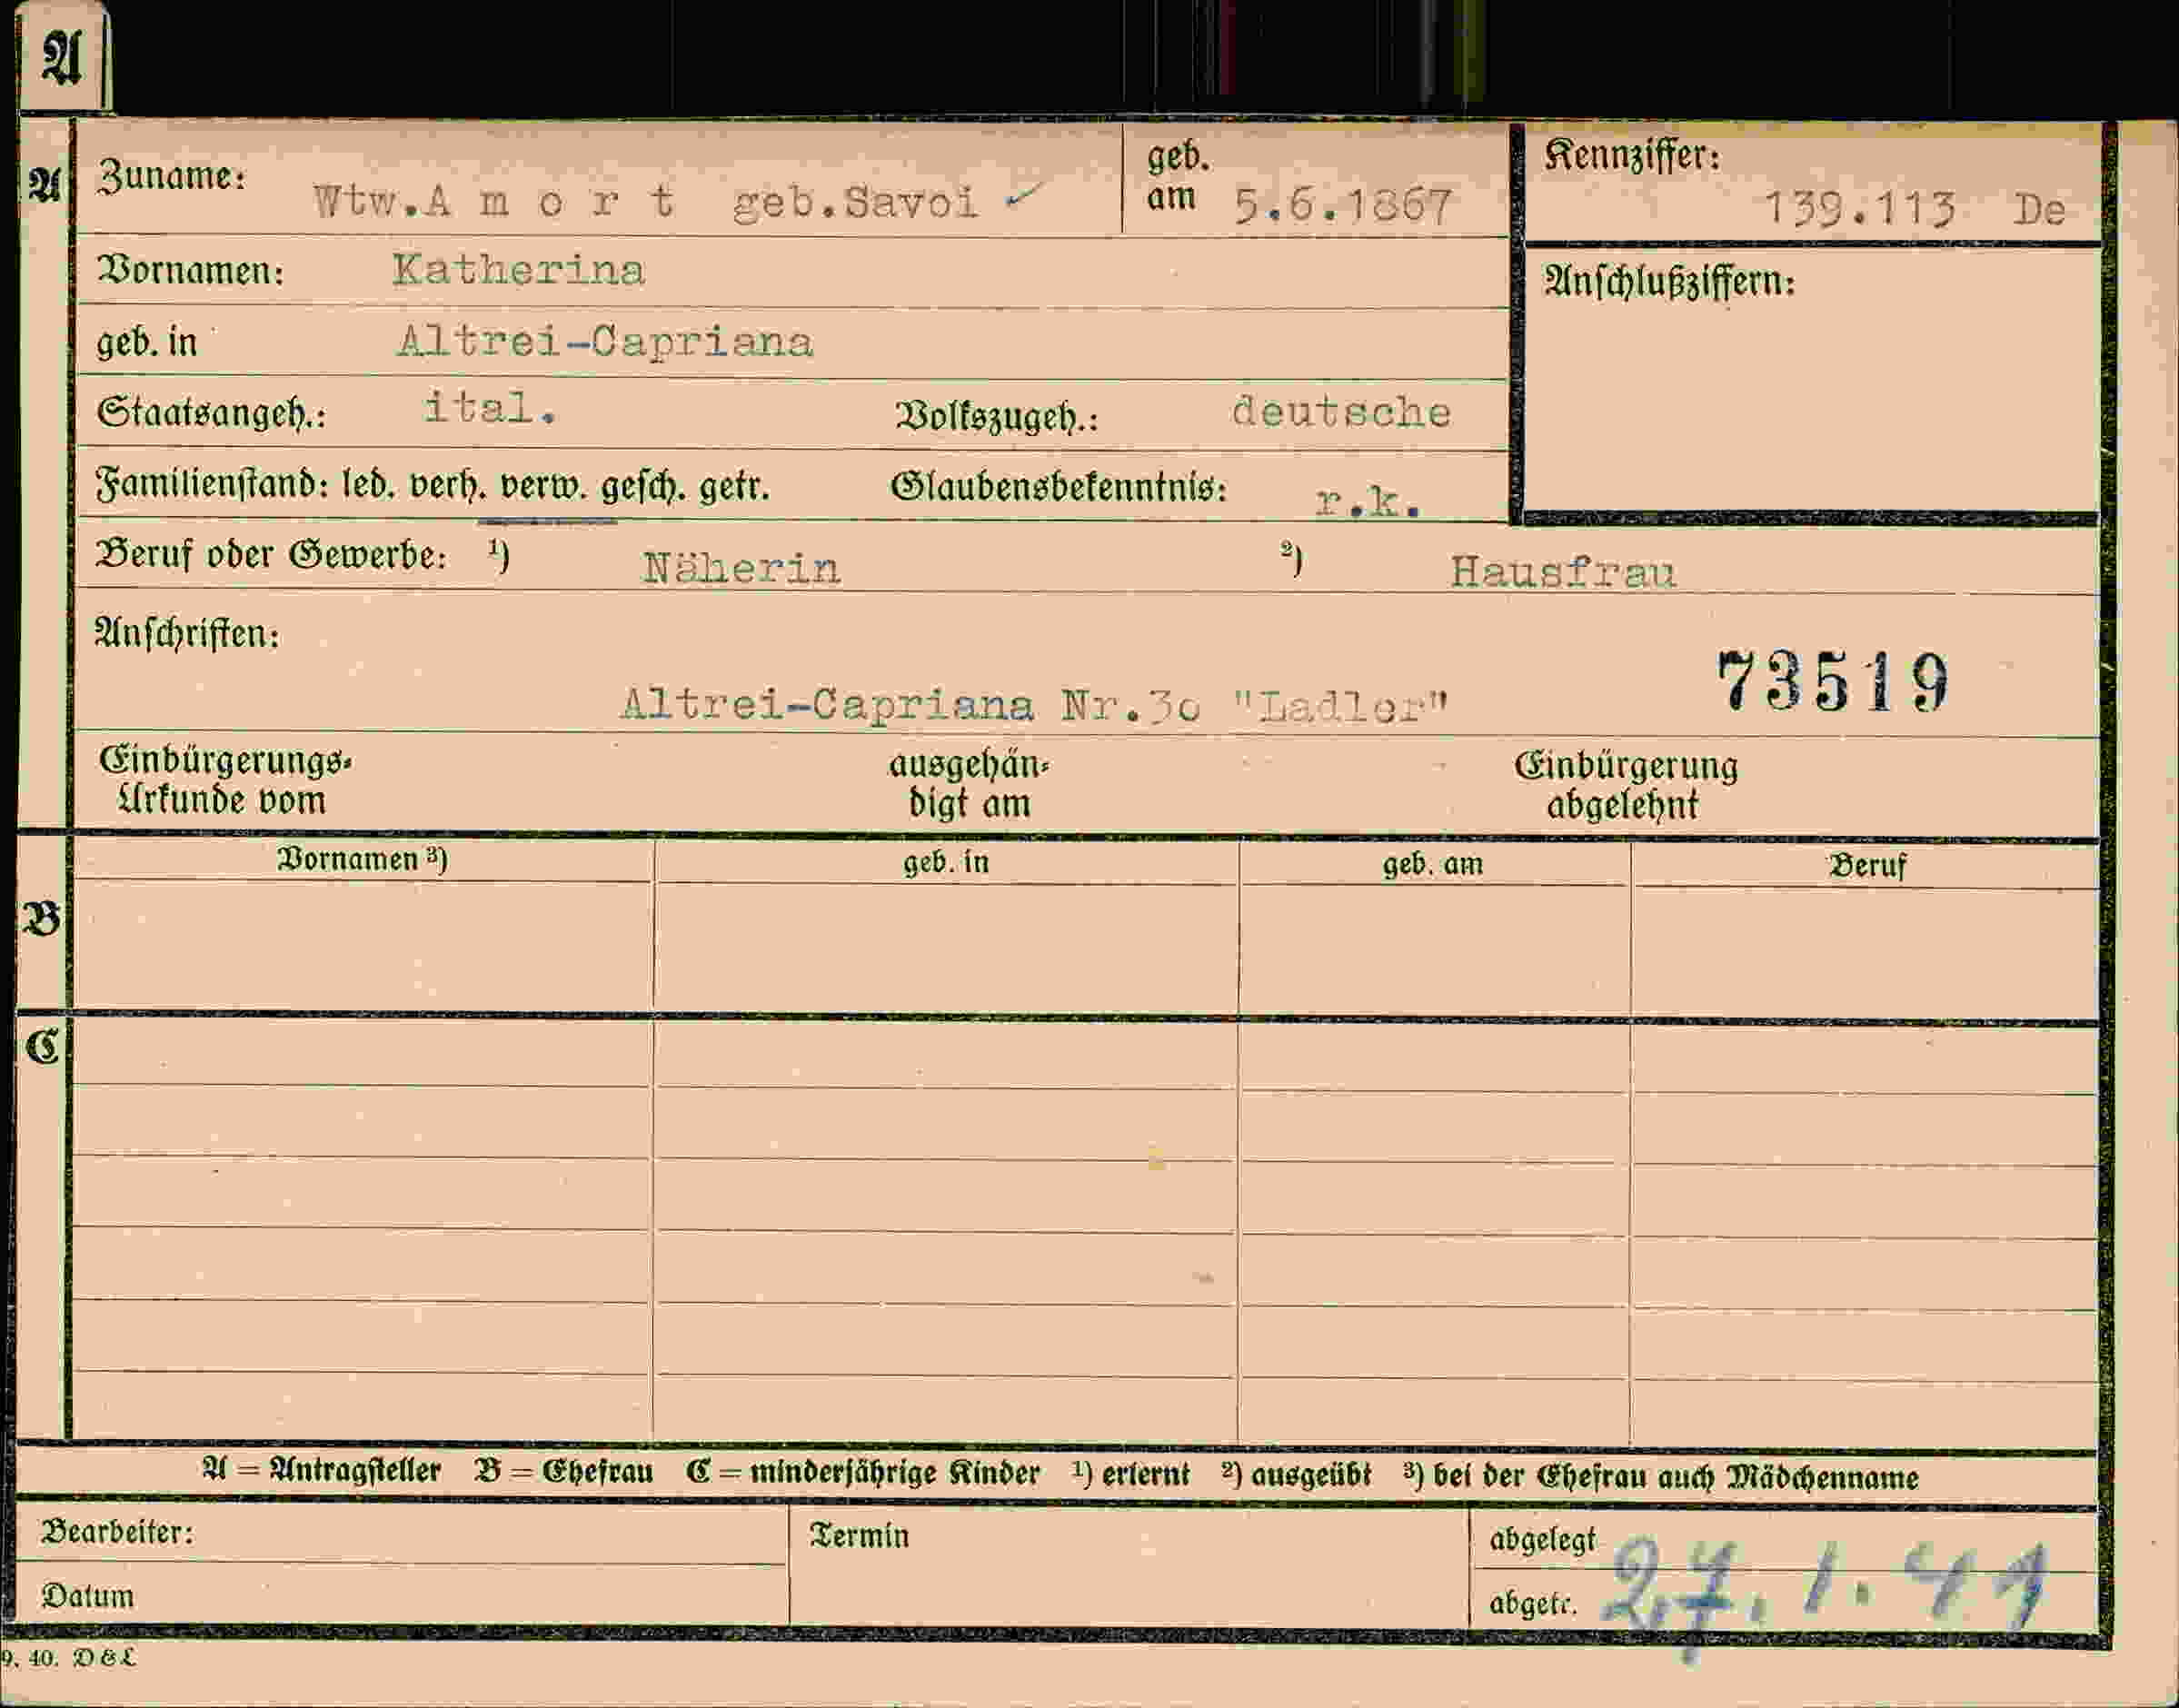 A
A Zuname: Wtw.A m o r t geb.Savoi ✓ geb. am 5.6.1867 Kennziffer: 139.113 De
Vornamen: Katherina Anschlußziffern:
geb. in Altrei-Capriana
Staatsangeh.: ital. Volkszugeh.: deutsche
Familienstand: led. verh. verw. gesch. getr. Glaubensbekenntnis: r.k.
Beruf oder Gewerbe: ¹) Näherin ²) Hausfrau
Anschriften:
73519
Altrei-Capriana Nr.3o "Ladler"
Einbürgerungs- ausgehän- Einbürgerung
Urkunde vom digt am abgelehnt
Vornamen ³) geb. in geb. am Beruf
B
C
A = Antragsteller B = Ehefrau C = minderjährige Kinder ¹) erlernt ²) ausgeübt ³) bei der Ehefrau auch Mädchenname
Bearbeiter: Termin abgelegt
Datum abgetr. 27.1.41
9. 40. D & L